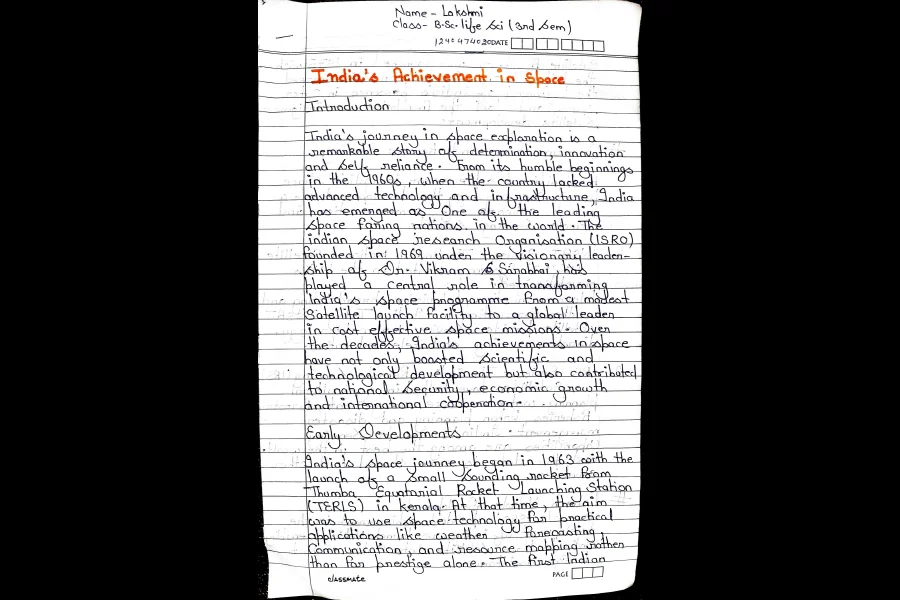 Name - Lakshmi
Class- B.Sc. life Sci (3nd Sem)
DATE
India's Achievement in Space
Introduction
India's journey in space explanation is a
remarkable story of determination, innovation
and self reliance. From its humble beginnings
in the 1960s, when the country lacked
advanced technology and infrastructure, India
has emerged as One of the leading
space faring nations in the world. The
indian space research Organisation (ISRO)
founded in 1969 under the visionary leader-
ship of Dr. Vikram Sarabhai, has
played a central role in transforming
India's space programme from a modest
Satellite launch facility to a global leader
in cost effective space missions. Over
the decades, India's achievements in space
have not only boosted scientific and
technological development but also contributed
to national security, economic growth
and international cooperation.
Early Developments
India's space journey began in 1963 with the
launch of a small sounding rocket from
Thumba Equatorial Rocket Launching Station
(TERLS) in kerala. At that time, the aim
was to use space technology for practical
applications like weather forecasting,
Communication, and resource mapping rather
than for prestige alone. The first Indian
classmate
PAGE